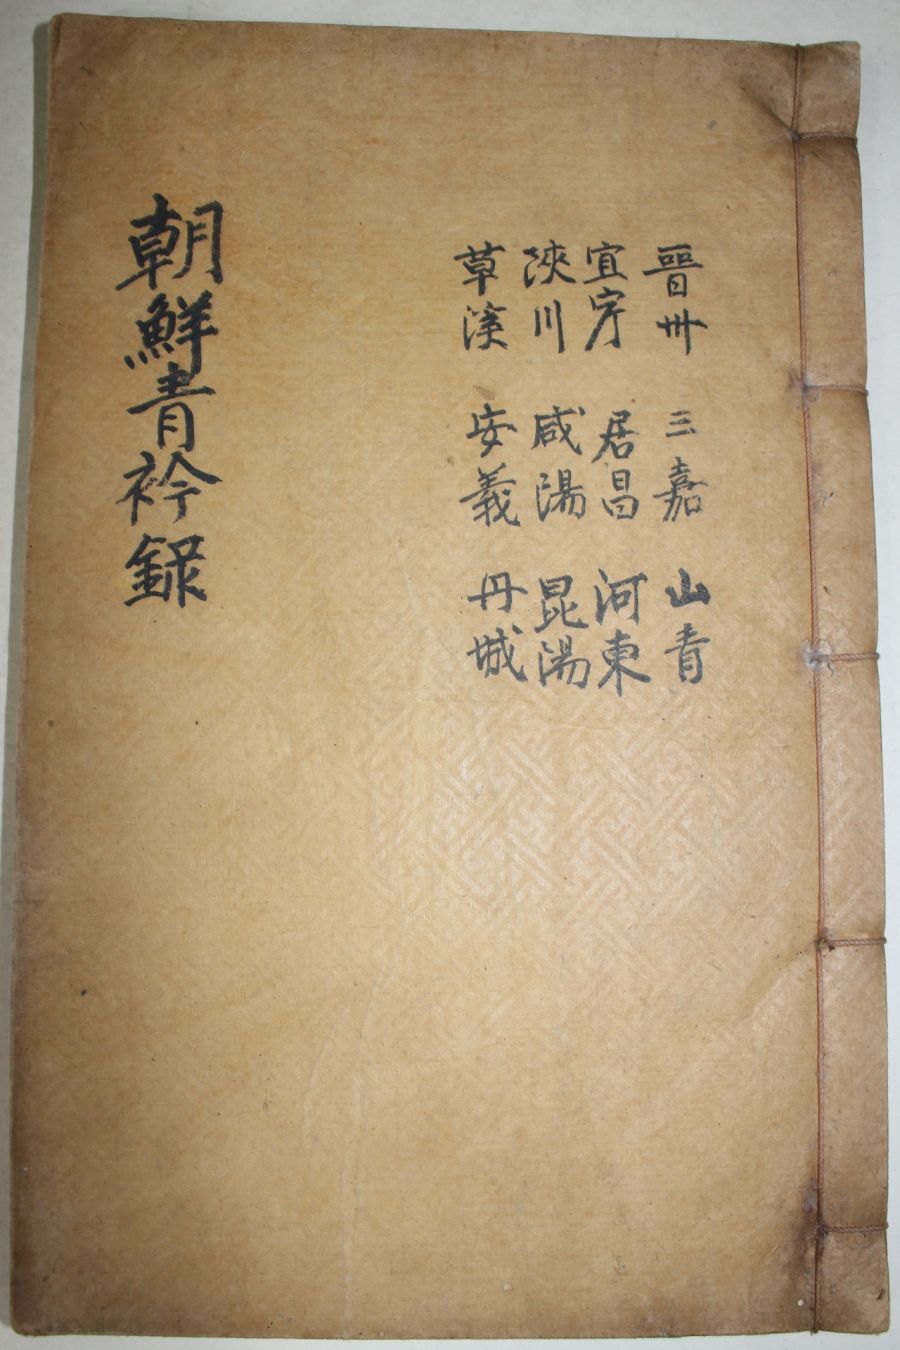 晉州 三嘉 山青
宜寧 居昌 河東
陜川 咸陽 昆陽
草溪 安義 丹城
朝鮮青衿録